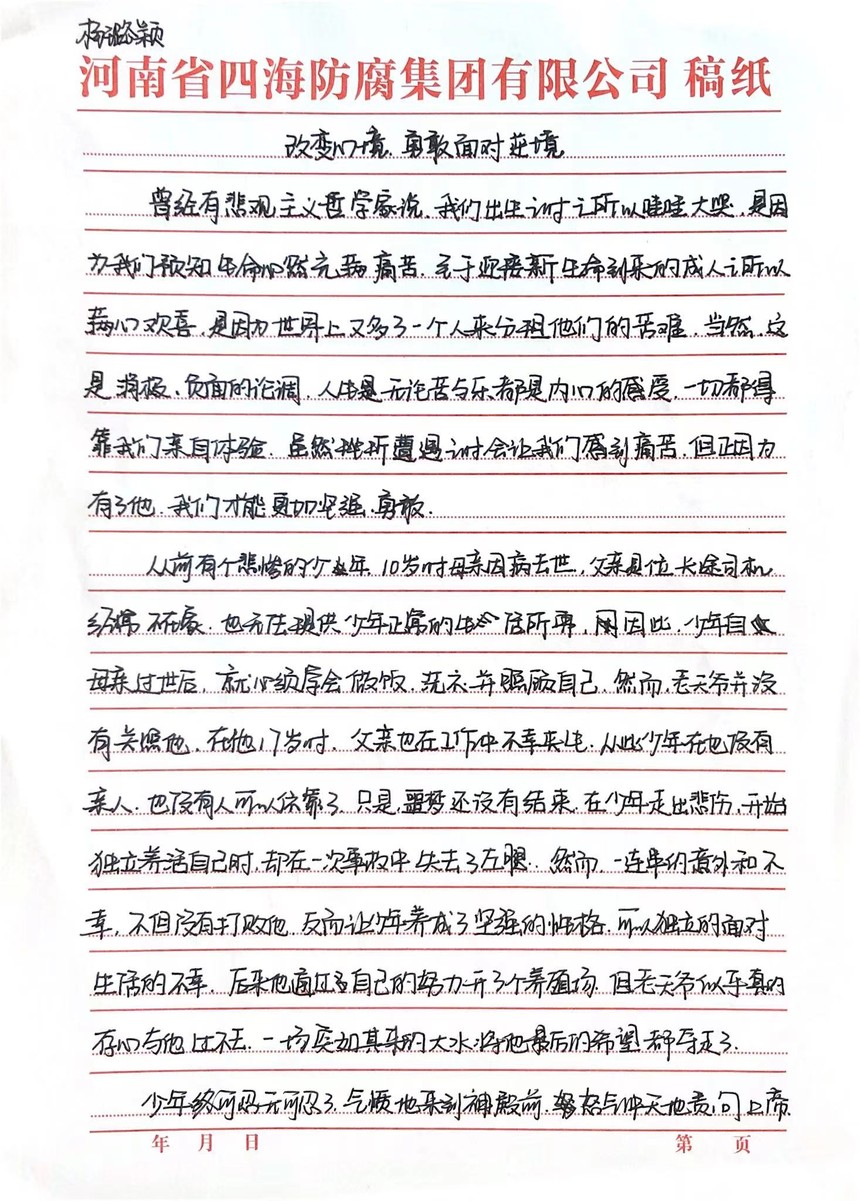 杨璐颖
河南省四海防腐集团有限公司 稿纸
改变心境、勇敢面对逆境
曾经有悲观主义哲学家说，我们出生时之所以哇哇大哭，是因
为我们预知生命必然充满痛苦，至于迎接新生命到来的成人之所以
满心欢喜，是因为世界上又多了一个人来分担他们的苦难，当然，这
是消极、负面的论调，人生是无论苦与乐都是内心的感受，一切都得
靠我们亲自体验，虽然挫折遭遇时会让我们感到痛苦，但正因为
有了他，我们才能更加坚强、勇敢．
从前有个悲惨的少年，10岁时母亲因病去世，父亲是位长途司机
经常不在家，也无法提供少年正常的生活所需，因此，少年自
母亲过世后，就必须学会做饭、洗衣并照顾自己，然而，老天爷并没
有关照他，在他17岁时，父亲也在工作中不幸丧生，从此少年在也没有
亲人，也没有人可以依靠了，只是，噩梦还没有结束，在少年走出悲伤，开始
独立养活自己时，却在一次事故中失去了左腿．然而，一连串的意外和不
幸，不但没有打败他，反而让少年养成了坚强的性格，可以独立的面对
生活的不幸，后来他通过自己的努力开了个养殖场，但老天爷似乎真的
存心与他过不去，一场突如其来的大水将他最后的希望都夺走了．
少年终 忍无可忍了，气愤地来到神殿前，怒气冲天地责问上帝
年 月 日
第 页